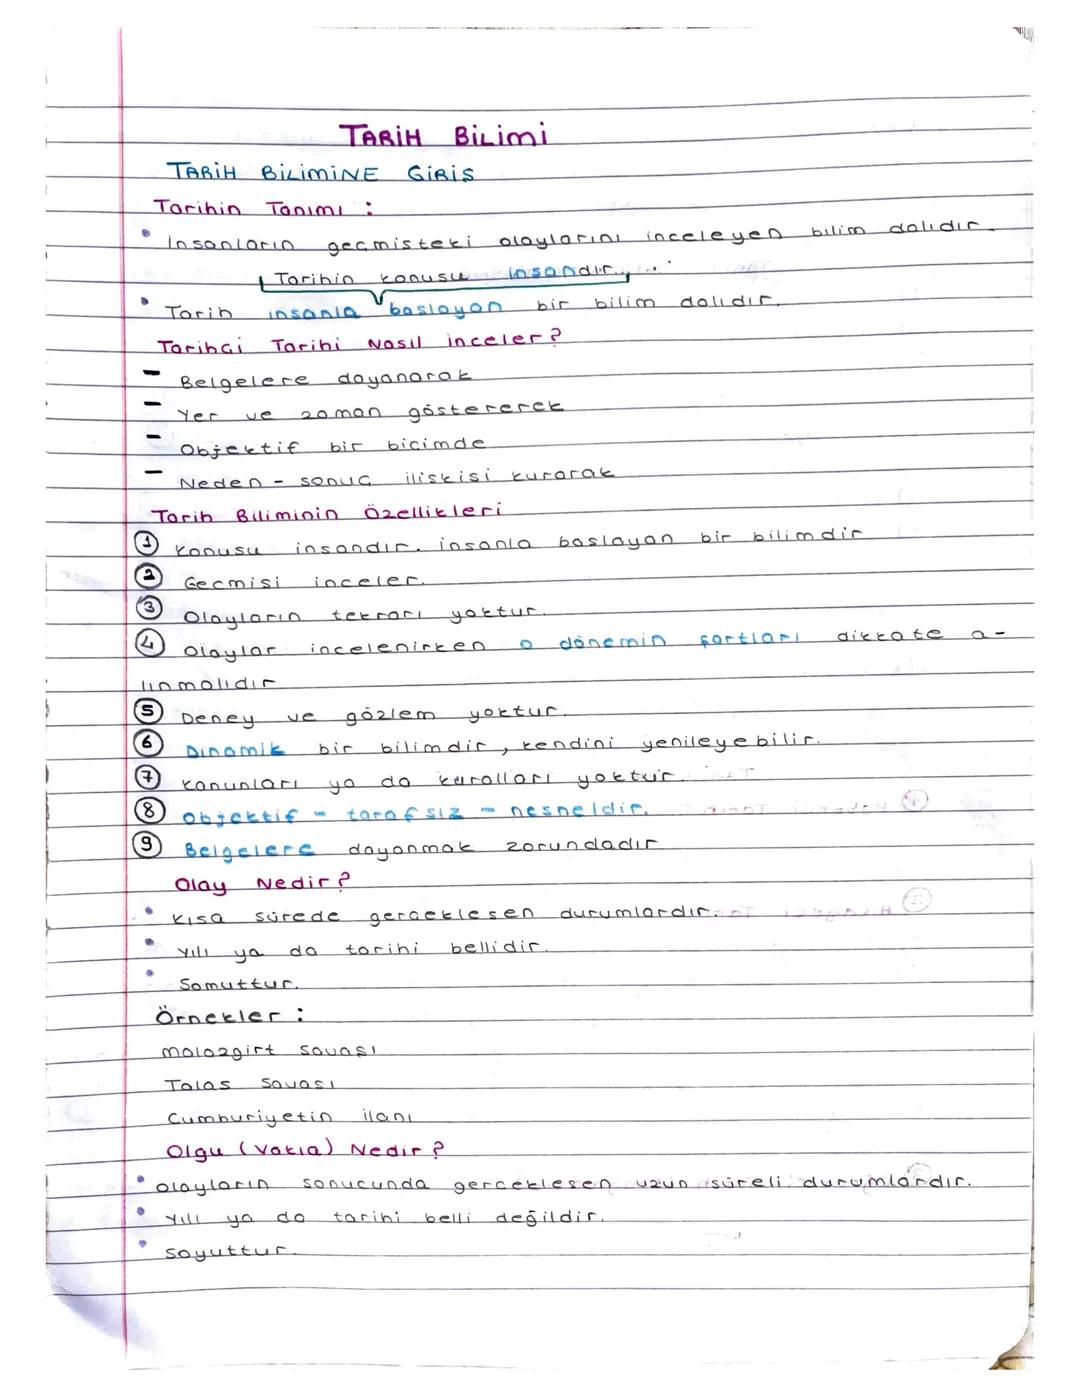 TARİH BİLİMİ
TARİH BİLİMİNE GİRİS
Tarihin Tanımı :
• İnsanların geçmisteki olaylarını inceleyen bilim dalıdır.
Tarihin konusu insandır.
• Tarih insanla baslayan bir bilim dalıdır.
Tarihci Tarihi Nasıl inceler?
- Belgelere dayanarak
- Yer ve zaman göstererek
- Objektif bir bicimde
- Neden - sonuc iliskisi kurarak
Tarih Biliminin Özellikleri
1 Konusu insandır. insanla baslayan bir bilimdir
2 Gecmisi inceler.
3 Olayların tekrarı yoktur.
4 Olaylar incelenirken o dönemin şartları dikkate a-
lınmalıdır
5 Deney ve gözlem yoktur.
6 Dinamik bir bilimdir, kendini yenileyebilir.
7 Kanunları ya da kuralları yoktur.
8 Objektif - tarafsız - nesneldir.
9 Belgelere dayanmak zorundadır
Olay Nedir?
• Kısa sürede gerceklesen durumlardır.
• Yılı ya da tarihi bellidir.
• Somuttur.
Örnekler :
Malazgirt Savası
Talas Savası
Cumhuriyetin ilanı
Olgu (Vakıa) Nedir?
• Olayların sonucunda gerceklesen uzun süreli durumlardır.
• Yılı ya da tarihi belli değildir.
• Soyuttur.